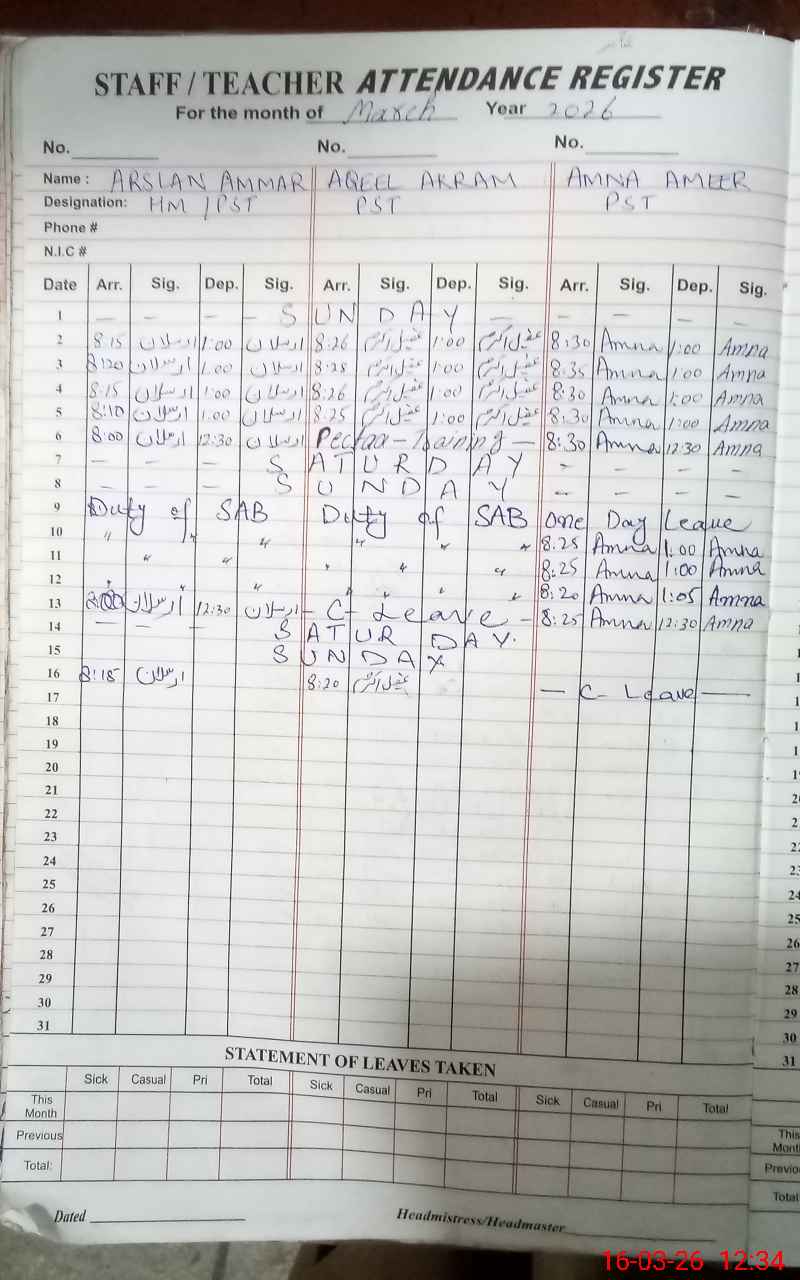 STAFF / TEACHER ATTENDANCE REGISTER
For the month of March Year 2026
No. No. No.
Name : ARSLAN AMMAR AQEEL AKRAM AMNA AMEER
Designation: HM / PST PST PST
Phone #
N.I.C #
Date Arr. Sig. Dep. Sig. Arr. Sig. Dep. Sig. Arr. Sig. Dep. Sig.
1 — — — — S U N D A Y — — — — —
2 8:15 ارسلان 1:00 ارسلان 8:26 عقیل اکرم 1:00 عقیل اکرم 8:30 Amna 1:00 Amna
3 8:20 ارسلان 1:00 ارسلان 8:28 عقیل اکرم 1:00 عقیل اکرم 8:35 Amna 1:00 Amna
4 8:15 ارسلان 1:00 ارسلان 8:26 عقیل اکرم 1:00 عقیل اکرم 8:30 Amna 1:00 Amna
5 8:10 ارسلان 1:00 ارسلان 8:25 عقیل اکرم 1:00 عقیل اکرم 8:30 Amna 1:00 Amna
6 8:00 ارسلان 12:30 ارسلان Pectaa - Training — 8:30 Amna 12:30 Amna
7 — — — S A T U R D A Y — — — —
8 — — — S U N D A Y — — — —
9 Duty of SAB Duty of SAB One Day Leave
10 " " " " " " 8:25 Amna 1:00 Amna
11 " " " " " " 8:25 Amna 1:00 Amna
12 " " " " " " 8:20 Amna 1:05 Amna
13 8:00 ارسلان 12:30 ارسلان - C- Leave - 8:25 Amna 12:30 Amna
14 — — — S A T U R D A Y.
15 S U N D A Y
16 8:15 ارسلان 8:20 عقیل اکرم — C- Leave —
17
18
19
20
21
22
23
24
25
26
27
28
29
30
31
STATEMENT OF LEAVES TAKEN
Sick Casual Pri Total Sick Casual Pri Total Sick Casual Pri Total
This Month
Previous
Total:
Dated Headmistress/Headmaster
16-03-26 12:34